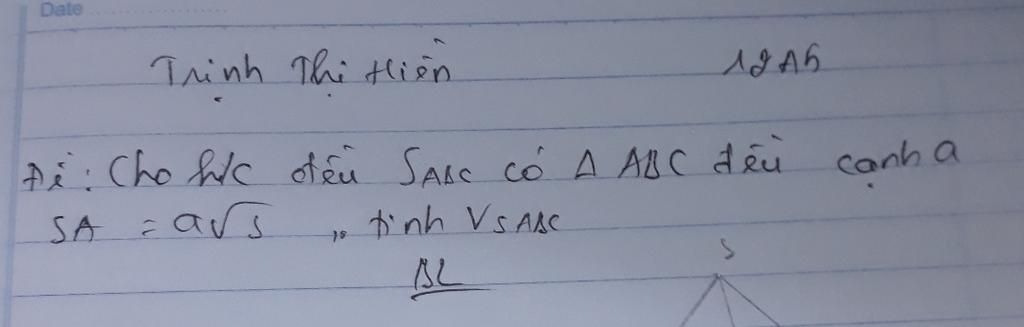 Date
Trịnh Thị Hiền 12A5
Đề: Cho h/c đều SABC có Δ ABC đều cạnh a
SA = a√5 , tính VSABC
BL
S